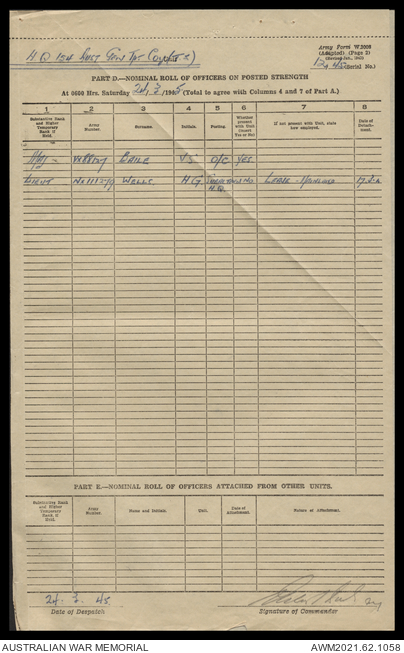 H Q 124 Aust Gen Tpt Coy
Army Form W.3009
(Adapted) (Page 2)
12.45 (Serial No.)
PART D.—NOMINAL ROLL OF OFFICERS ON POSTED STRENGTH
At 0600 Hrs. Saturday 24, 3, 1945 (Total to agree with Columns 4 and 7 of Part A.)
1 2 3 4 5 6 7 8
Substantive Rank and Higher Temporary Rank if Held. Army Number. Surname. Initials. Posting. Whether present with Unit (Insert Yes or No) If not present with Unit, state how employed. Date of Detachment.
Maj BAILE O/C. Yes.
LIEUT WELLS H G No Leave
PART E.—NOMINAL ROLL OF OFFICERS ATTACHED FROM OTHER UNITS.
Substantive Rank and Higher Temporary Rank if Held. Army Number. Name and Initials. Unit. Date of Attachment. Nature of Attachment.
24. 3. 45
Date of Despatch Signature of Commander
AUSTRALIAN WAR MEMORIAL AWM2021.62.1058